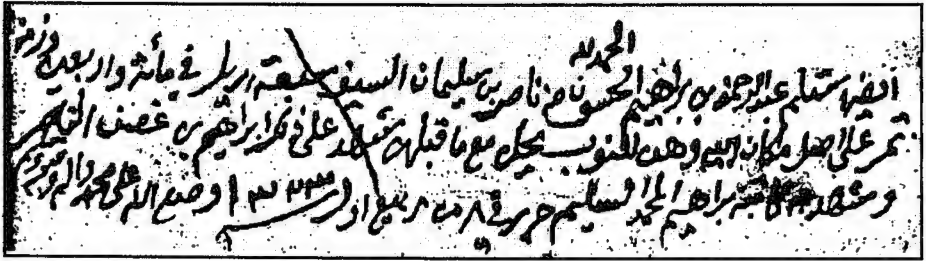 الحمد لله
أيضا استلم عبد الرحمن بن براهيم الحسون من ناصر بن سليمان السيف سبعة اريل في مائة واربعين وزنة
تمر على اصل مكان وهذا المكتوب يحل مع ما قبله شهد على ذلك ابراهيم بن غصن الناصر
وشهد به كاتبه براهيم الحمد السليم حرر في ٨ من ربيع اول سنة ١٣٣٣ وصلى الله على محمد واله وصحبه وسلم